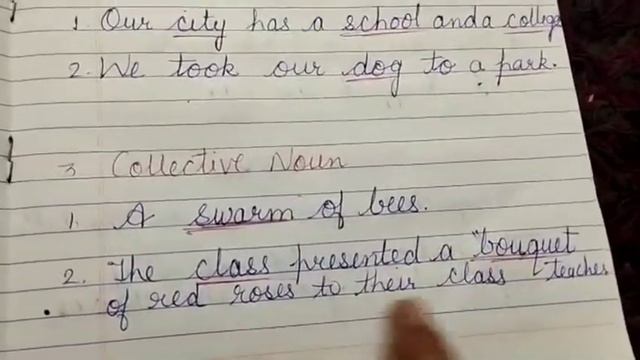 1. Our city has a school and a college
2. We took our dog to a park.
3 Collective Noun
1. A swarm of bees.
2. The class presented a "bouquet
of red roses to their class teacher